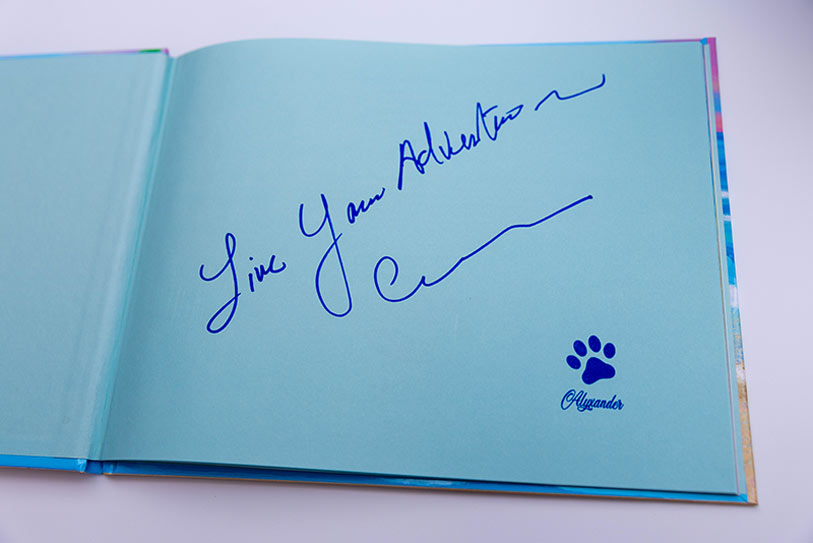 Live Your Adventure
Alyxander